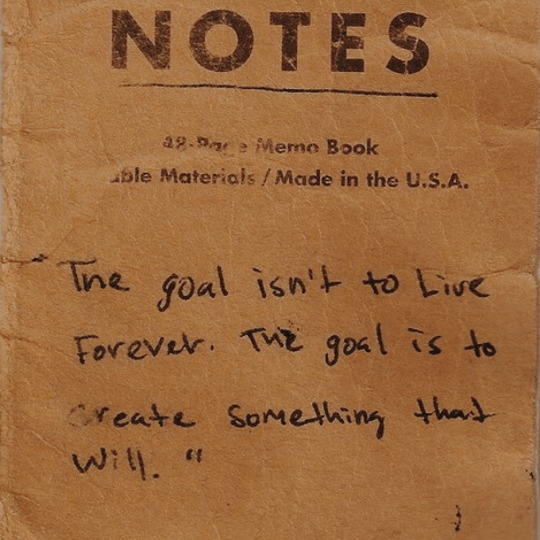 NOTES
48-Page Memo Book
Materials / Made in the U.S.A.
"The goal isn't to Live
Forever. The goal is to
Create something that
Will. "